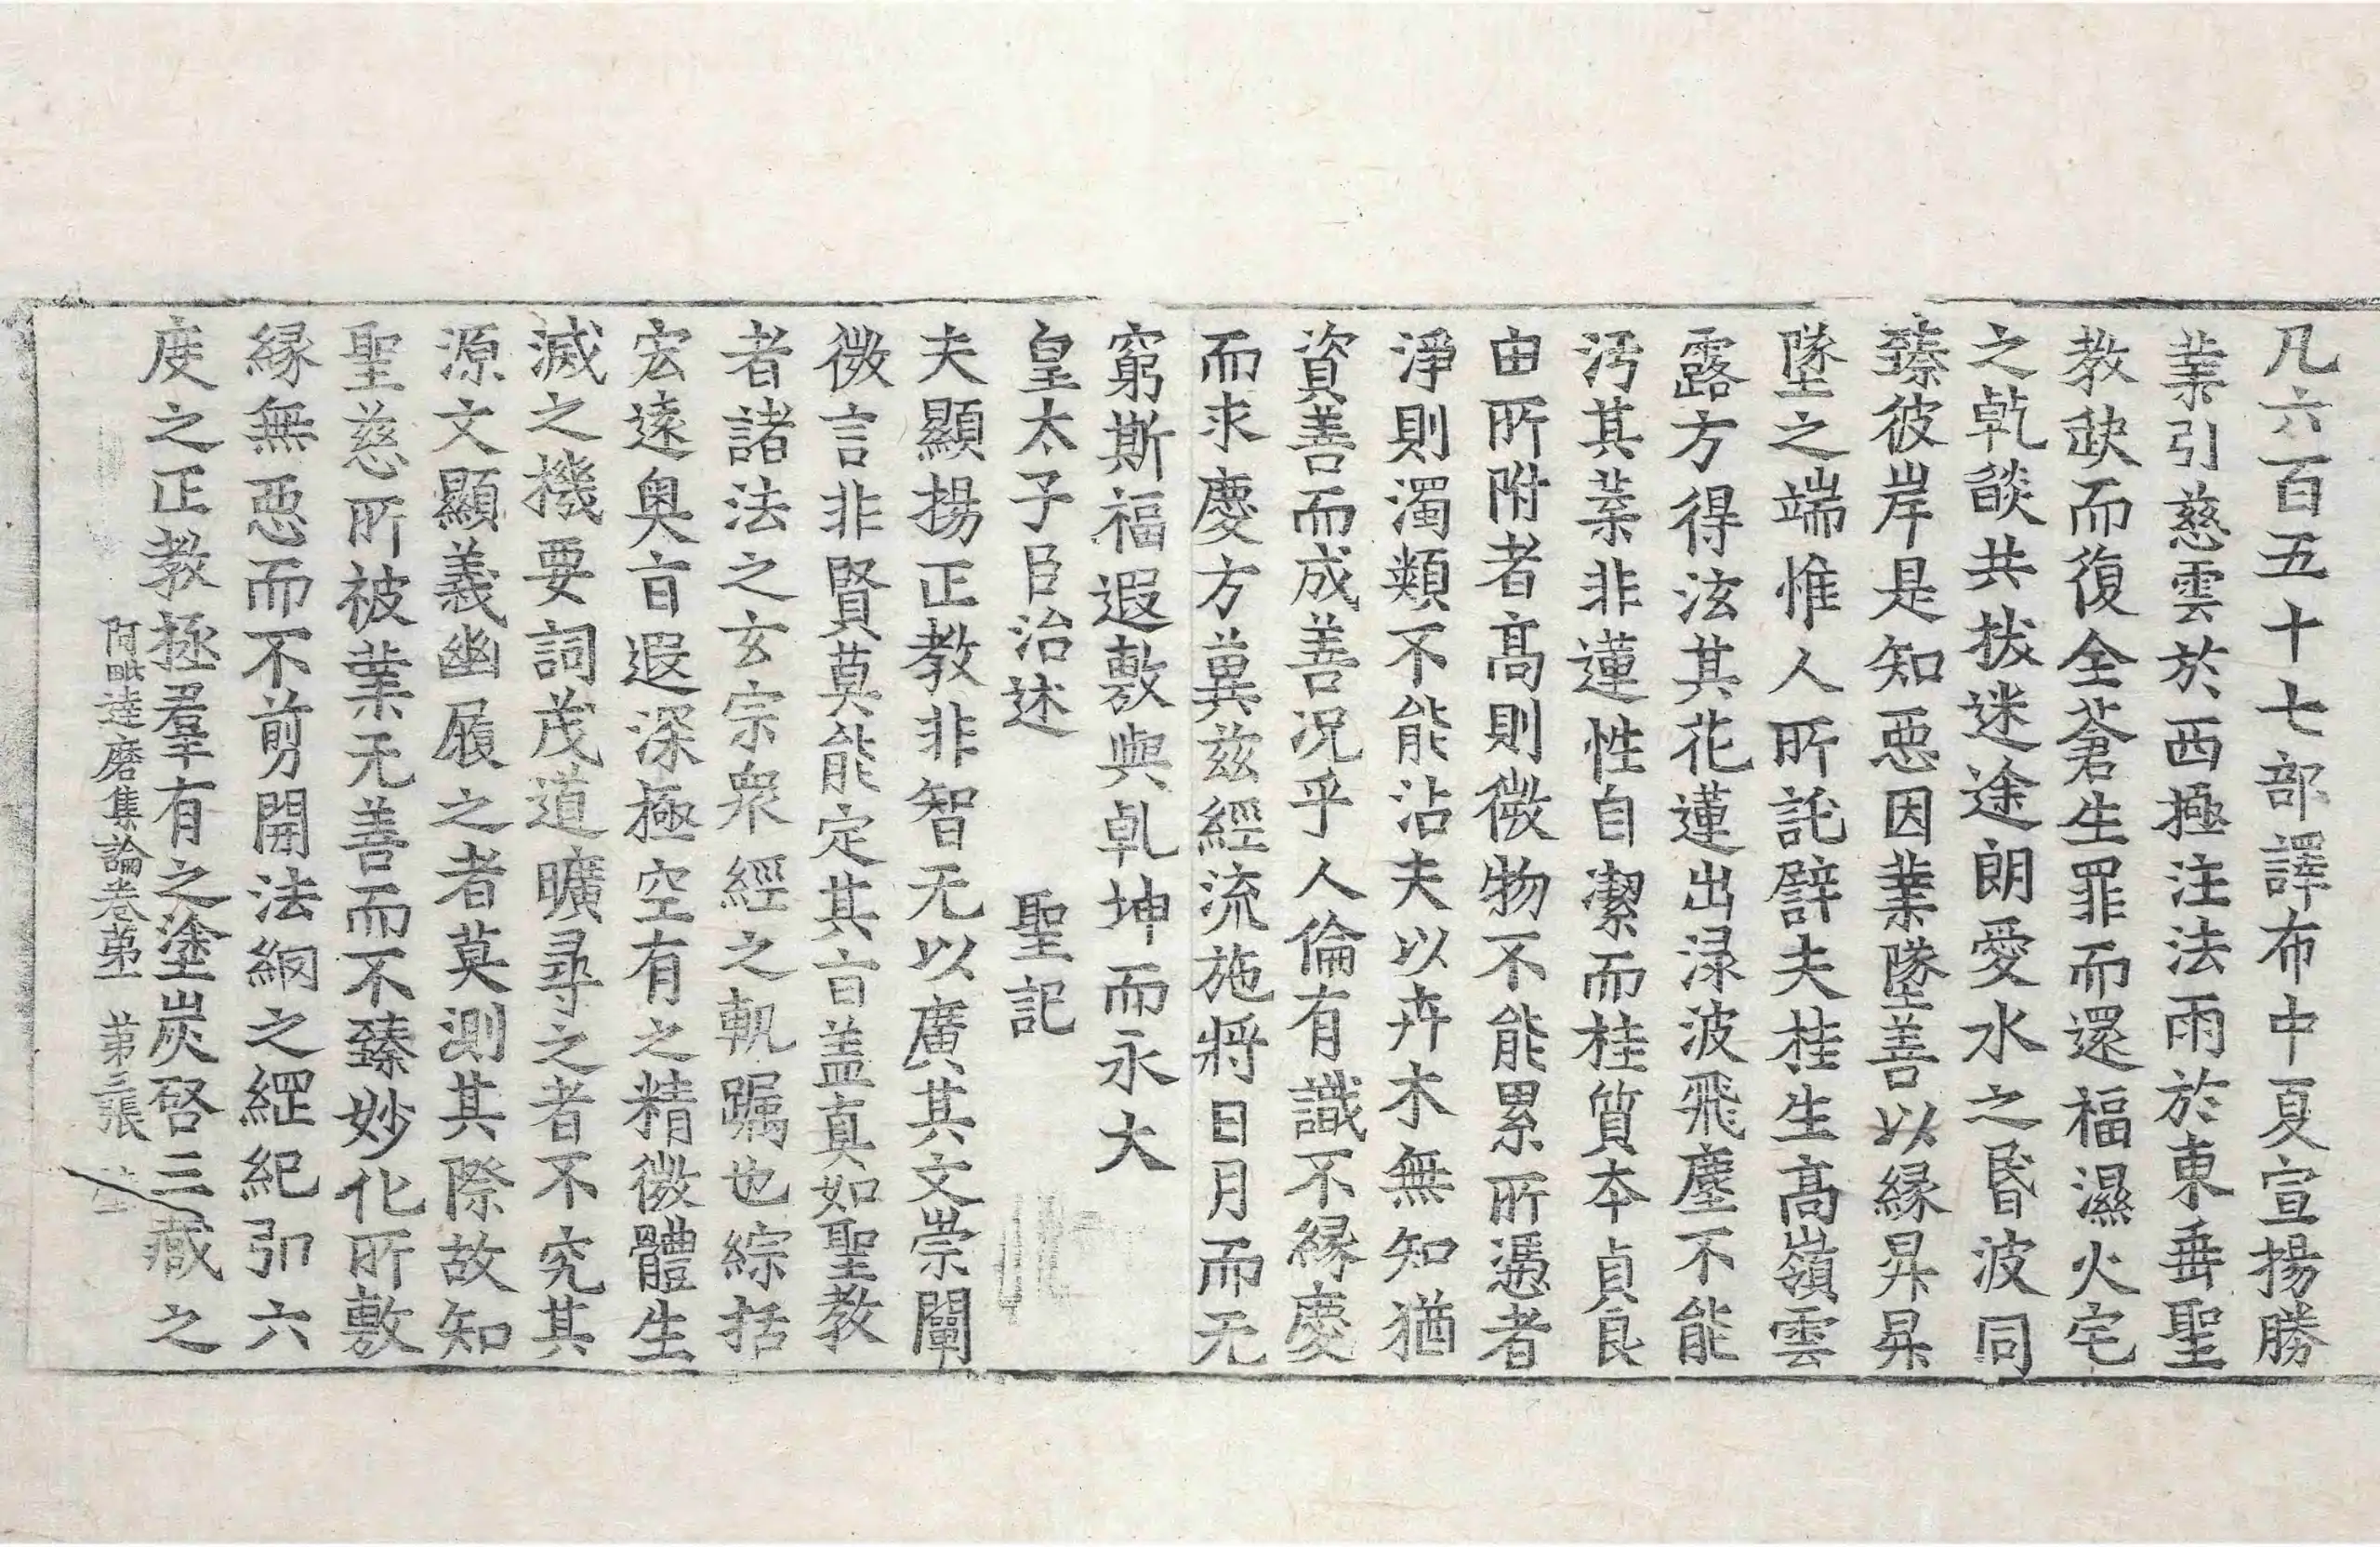 凡六百五十七部譯布中夏宣揚勝
業引慈雲於西極注法雨於東垂聖
教缺而復全蒼生罪而還福濕火宅
之乾燄共拔迷途朗愛水之昏波同
臻彼岸是知惡因業墜善以緣昇昇
墜之端惟人所託譬夫桂生高嶺雲
露方得泫其花蓮出淥波飛塵不能
汚其葉非蓮性自潔而桂質本貞良
由所附者高則微物不能累所憑者
淨則濁類不能沾夫以卉木無知猶
資善而成善况乎人倫有識不緣慶
而求慶方冀兹經流施將日月而无
窮斯福遐敷與乹坤而永大
皇太子臣治述　聖記
夫顯揚正教非智无以廣其文崇闡
微言非賢莫能定其旨盖真如聖教
者諸法之玄宗衆經之軌躅也綜括
宏遠奧旨遐深極空有之精微體生
滅之機要詞茂道曠尋之者不究其
源文顯義幽履之者莫測其際故知
聖慈所被業无善而不臻妙化所敷
緣無惡而不剪開法網之綱紀弘六
度之正教拯羣有之塗炭啓三藏之
阿毗達磨集論卷第一　第三張